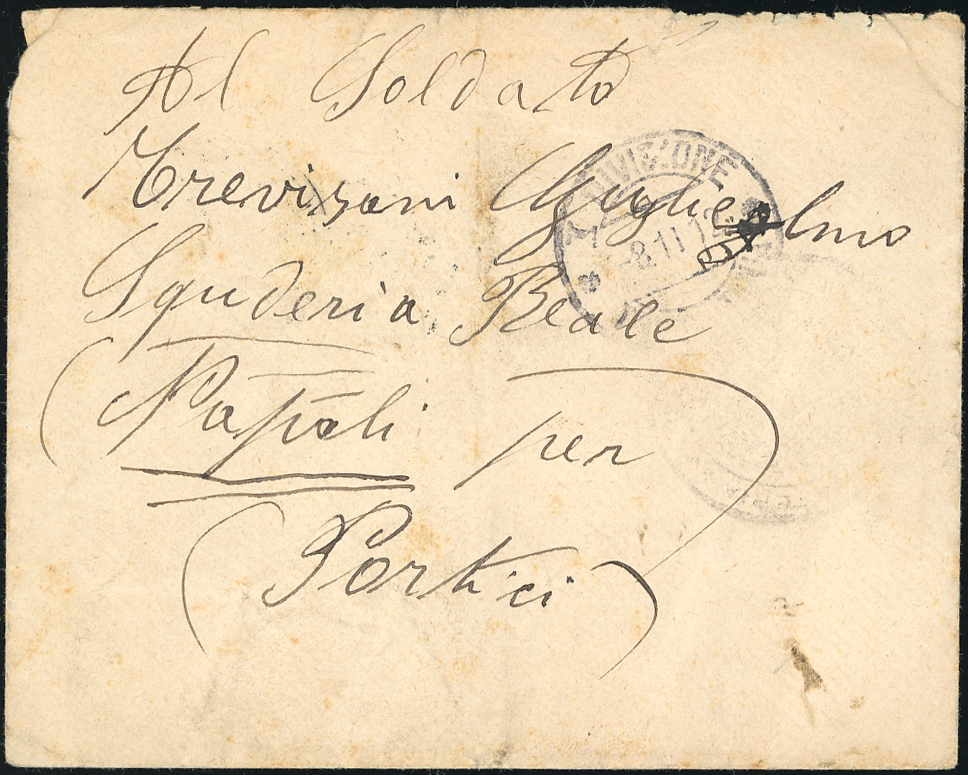 Al Soldato
Trevisani Guglielmo
DIVISIONE
-8.11.12
Squderia Reale
(Napoli per)
(Portici)